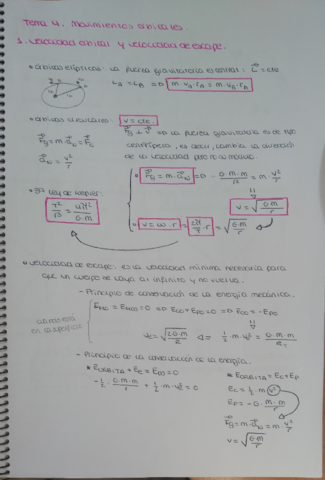 Tema 4. Movimientos orbitales.
1. Velocidad orbital y velocidad de escape.
• Órbitas elípticas: La fuerza gravitatoria es central: L = cte
L_A = L_B => m·v_A·r_A = m·v_B·r_B
• Órbitas circulares: v = cte
F_g = m·a_N = F_c
F_g ⊥ v => La fuerza gravitatoria es de tipo
centrípeto, es decir, cambia la dirección
a_N = v²/r
de la velocidad pero no su módulo.
• 3ª Ley de Kepler:
• F_g = m·a_N => G·M·m/r² = m·v²/r
T²/r³ = 4π²/G·M
v = √(G·M/r)
• v = ω·r = 2π/T·r = √(G·M/r)
• Velocidad de escape: es la velocidad mínima necesaria para
que un cuerpo se vaya al infinito y no vuelva.
- Principio de conservación de la energía mecánica.
=> E_c0 = -E_p0
en la superficie
v_e = √(2·G·M/R) <= ½·m·v_e² = G·M·m/R_T
- Principio de la conservación de la energía.
* E_ÓRBITA + E_c = E_∞ = 0
* E_ÓRBITA = E_c + E_p
-½·G·M·m/r + ½·m·v_e² = 0
E_c = ½·m·v²
E_p = -G·M·m/r
F_g = m·a_N = m·v²/r
v = √(G·M/r)